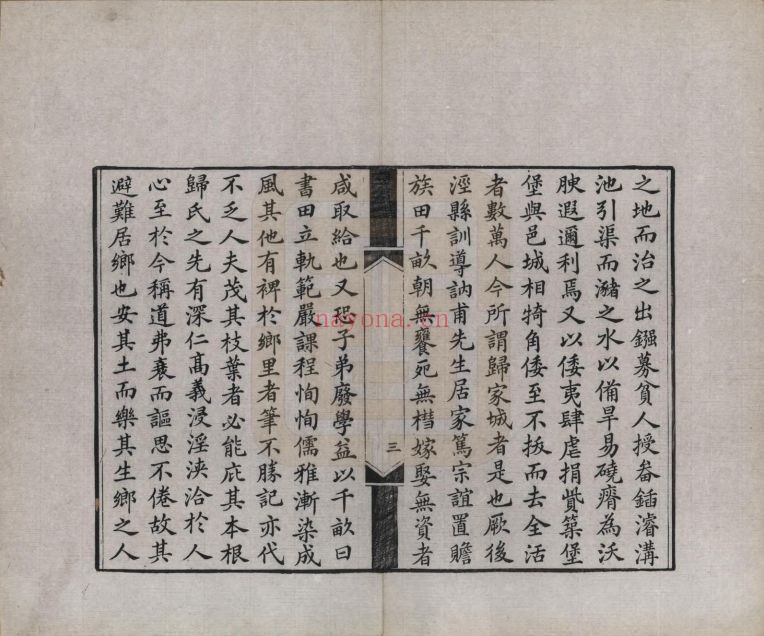 之地而治之出鏹募貧人授畚鍤濬溝
池引渠而瀦之水以備旱易磽瘠為沃
腴遐邇利焉又以倭夷肆虐捐貲築堡
堡與邑城相犄角倭至不扳而去全活
者數萬人今所謂歸家城者是也厥後
涇縣訓導訥甫先生居家篤宗誼置贍
族田千畝朝無饔死無槥嫁娶無資者
三
咸取給也又恐子弟廢學益以千畝曰
書田立軌範嚴課程恂恂儒雅漸染成
風其他有裨於鄉里者筆不勝記亦代
不乏人夫茂其枝葉者必能庇其本根
歸氏之先有深仁高義浸淫浹洽於人
心至於今稱道弗衰而謳思不倦故其
避難居鄉也安其土而樂其生鄉之人
nayona.cn